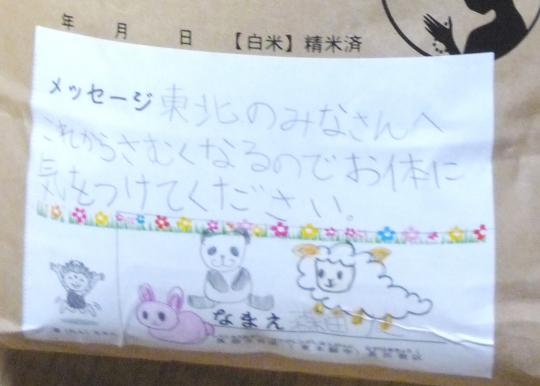 年 月 日 【白米】精米済
メッセージ 東北のみなさんへ
これからさむくなるのでお体に
気をつけてください。
なまえ 森田